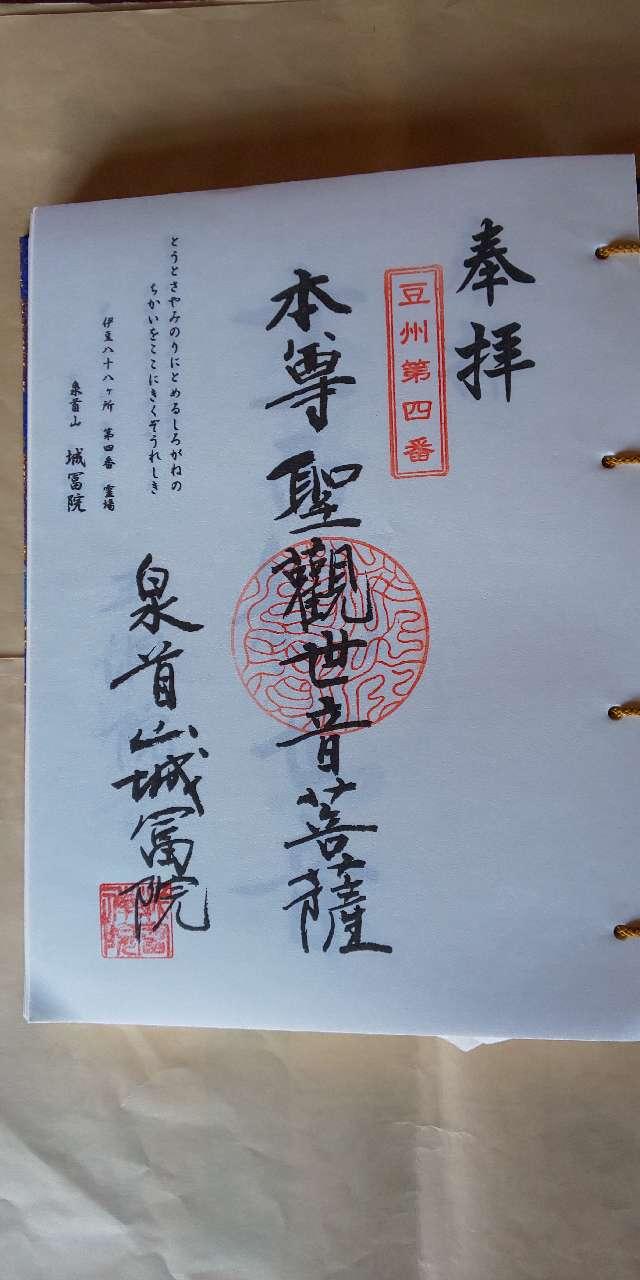 奉拝
豆州第四番
本尊 聖觀世音菩薩
泉首山城冨院
とうとさやみのりにとめるしろがねの
ちかいをここにきくぞうれしき
伊豆八十八ヶ所 第四番 霊場
泉首山 城冨院